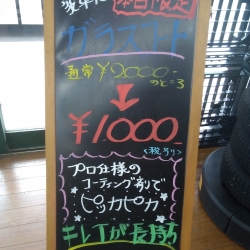 本日限定
ガラスコート
通常¥2000-
のところ
¥1000
<税別>
プロ仕様の
コーティング剤で
ピッカピカ
キレイが長持ち